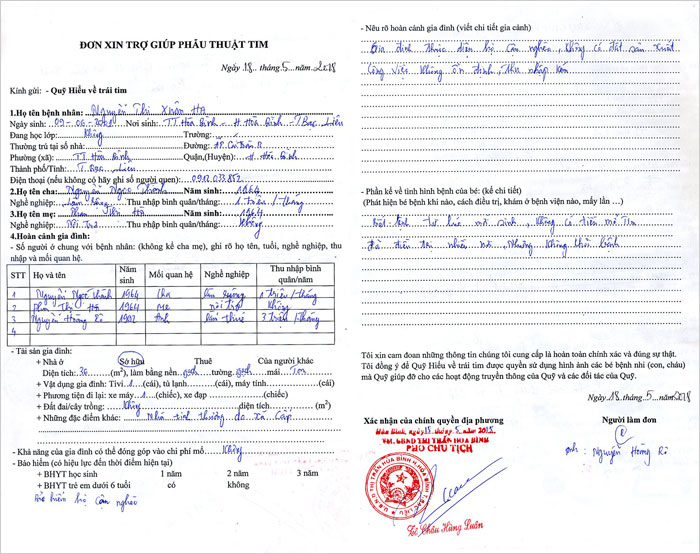 ĐƠN XIN TRỢ GIÚP PHẪU THUẬT TIM
Ngày 18 .tháng.5....năm..2018
Kính gửi: - Quỹ Hiểu về trái tim
1.Họ tên bệnh nhân: Nguyễn Thị Xuân Hạ
Ngày sinh: 09-06- Nơi sinh: TT Hòa Bình - H Hòa Bình - T Bạc Liêu
Đang học lớp: Không Trường:
Thường trú tại số nhà: Đường: AP.
Phường (xã): TT Hòa Bình Quận,(Huyện): H Hòa Bình
Thành phố/Tỉnh: T Bạc Liêu
Điện thoại (nếu không có hãy ghi số người quen): 0912 033 852
2.Họ tên cha: Nguyễn Ngọc Thành Năm sinh: 1964
Nghề nghiệp: Thu nhập bình quân/tháng: 1 triệu /tháng
3.Họ tên mẹ: Phan Thị Hạ Năm sinh: 1964
Nghề nghiệp: Nội Trợ Thu nhập bình quân/tháng: Không
4.Hoàn cảnh gia đình:
- Số người ở chung với bệnh nhân: (không kể cha mẹ), ghi rõ họ tên, tuổi, nghề nghiệp, thu nhập và mối quan hệ.
STT Họ và tên Năm sinh Mối quan hệ Nghề nghiệp Thu nhập bình quân/năm
1 Nguyễn Ngọc Thành 1964 Cha 1 triệu /tháng
2 Phan Thị Hạ 1964 Mẹ nội trợ Không
3 Nguyễn Hoàng Anh thuê 3 triệu /tháng
4
- Tài sản gia đình:
+ Nhà ở Sở hữu Thuê Của người khác
Diện tích: 36 (m²), làm bằng nền gạch tường gạch mái Ton
+ Vật dụng gia đình: Tivi.1.....(cái), tủ lạnh.........(cái), máy tính............(cái).
+ Phương tiện đi lại: xe máy..1...(chiếc), xe đạp...............(chiếc)
+ Đất đai/cây trồng: Không diện tích ............. (m²)
+ Những đặc điểm khác: Nhà tình thương do xã Cấp
- Khả năng của gia đình có thể đóng góp vào chi phí mổ Không
- Bảo hiểm (có hiệu lực đến thời điểm hiện tại)
+ BHYT học sinh 1 năm 2 năm 3 năm
+ BHYT trẻ em dưới 6 tuổi có không
Bảo hiểm hộ Cận nghèo
- Nêu rõ hoàn cảnh gia đình (viết chi tiết gia cảnh)
Gia đình thuộc diện hộ Cận nghèo, không có đất sản xuất
Công việc không ổn định, thu nhập kém
- Phần kể về tình hình bệnh của bé: (kể chi tiết)
(Phát hiện bệnh khi nào, cách điều trị, khám ở bệnh viện nào, mấy lần ...)
từ lúc mới sinh, không có tiền mổ Tim
Đã điều trị nhiều nơi, nhưng không khỏi bệnh
Tôi xin cam đoan những thông tin chúng tôi cung cấp là hoàn toàn chính xác và đúng sự thật.
Tôi đồng ý để Quỹ Hiểu về trái tim được quyền sử dụng hình ảnh các bé bệnh nhi (con, cháu) mà Quỹ giúp đỡ cho các hoạt động truyền thông của Quỹ và các đối tác của Quỹ.
Ngày.18..tháng...5.....năm..2018
Xác nhận của chính quyền địa phương
Hòa Bình, ngày 18 tháng 5 năm 2018
TM. UBND THỊ TRẤN HÒA BÌNH
PHÓ CHỦ TỊCH
Lê Châu Hùng Luân
Người làm đơn
Anh: Nguyễn Hoàng